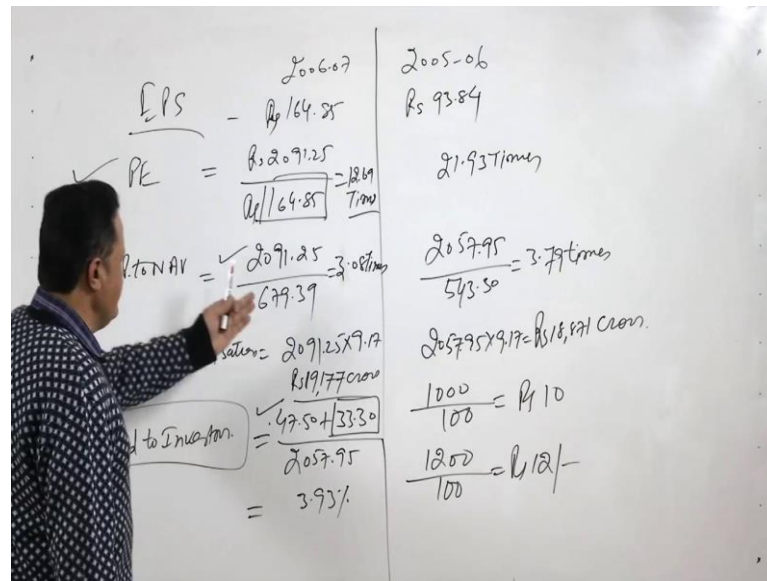 2006-07
EPS - Rs 164.85
PE = Rs 2091.25 / Rs 164.85 = 12.69 Times
P. to NAV = 2091.25 / 679.39 = 3.08 times
sation = 2091.25 x 9.17
Rs 19,177 crore
d to Investors. = 47.50 + 33.30 / 2057.95
= 3.93%
2005-06
Rs 93.84
21.93 Times
2057.95 / 543.50 = 3.79 times
2057.95 x 9.17 = Rs 18,871 crore.
1000 / 100 = Rs 10
1200 / 100 = Rs 12/-